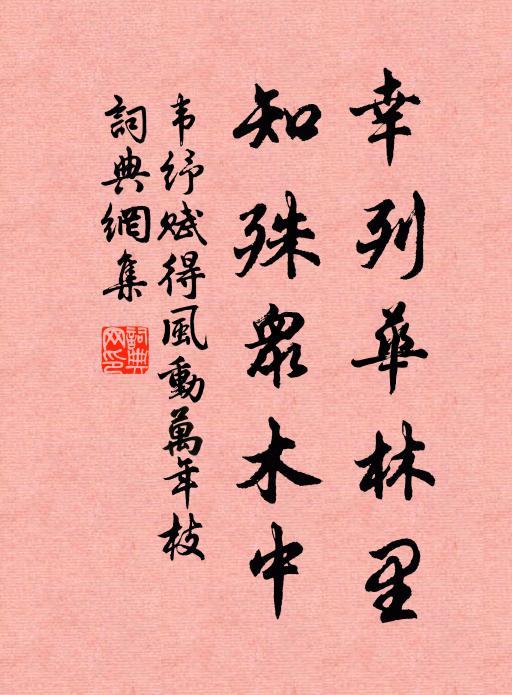 幸列華林里
知殊衆木中
韦纾赋得風動萬年枝
詞典網集
詞典网印